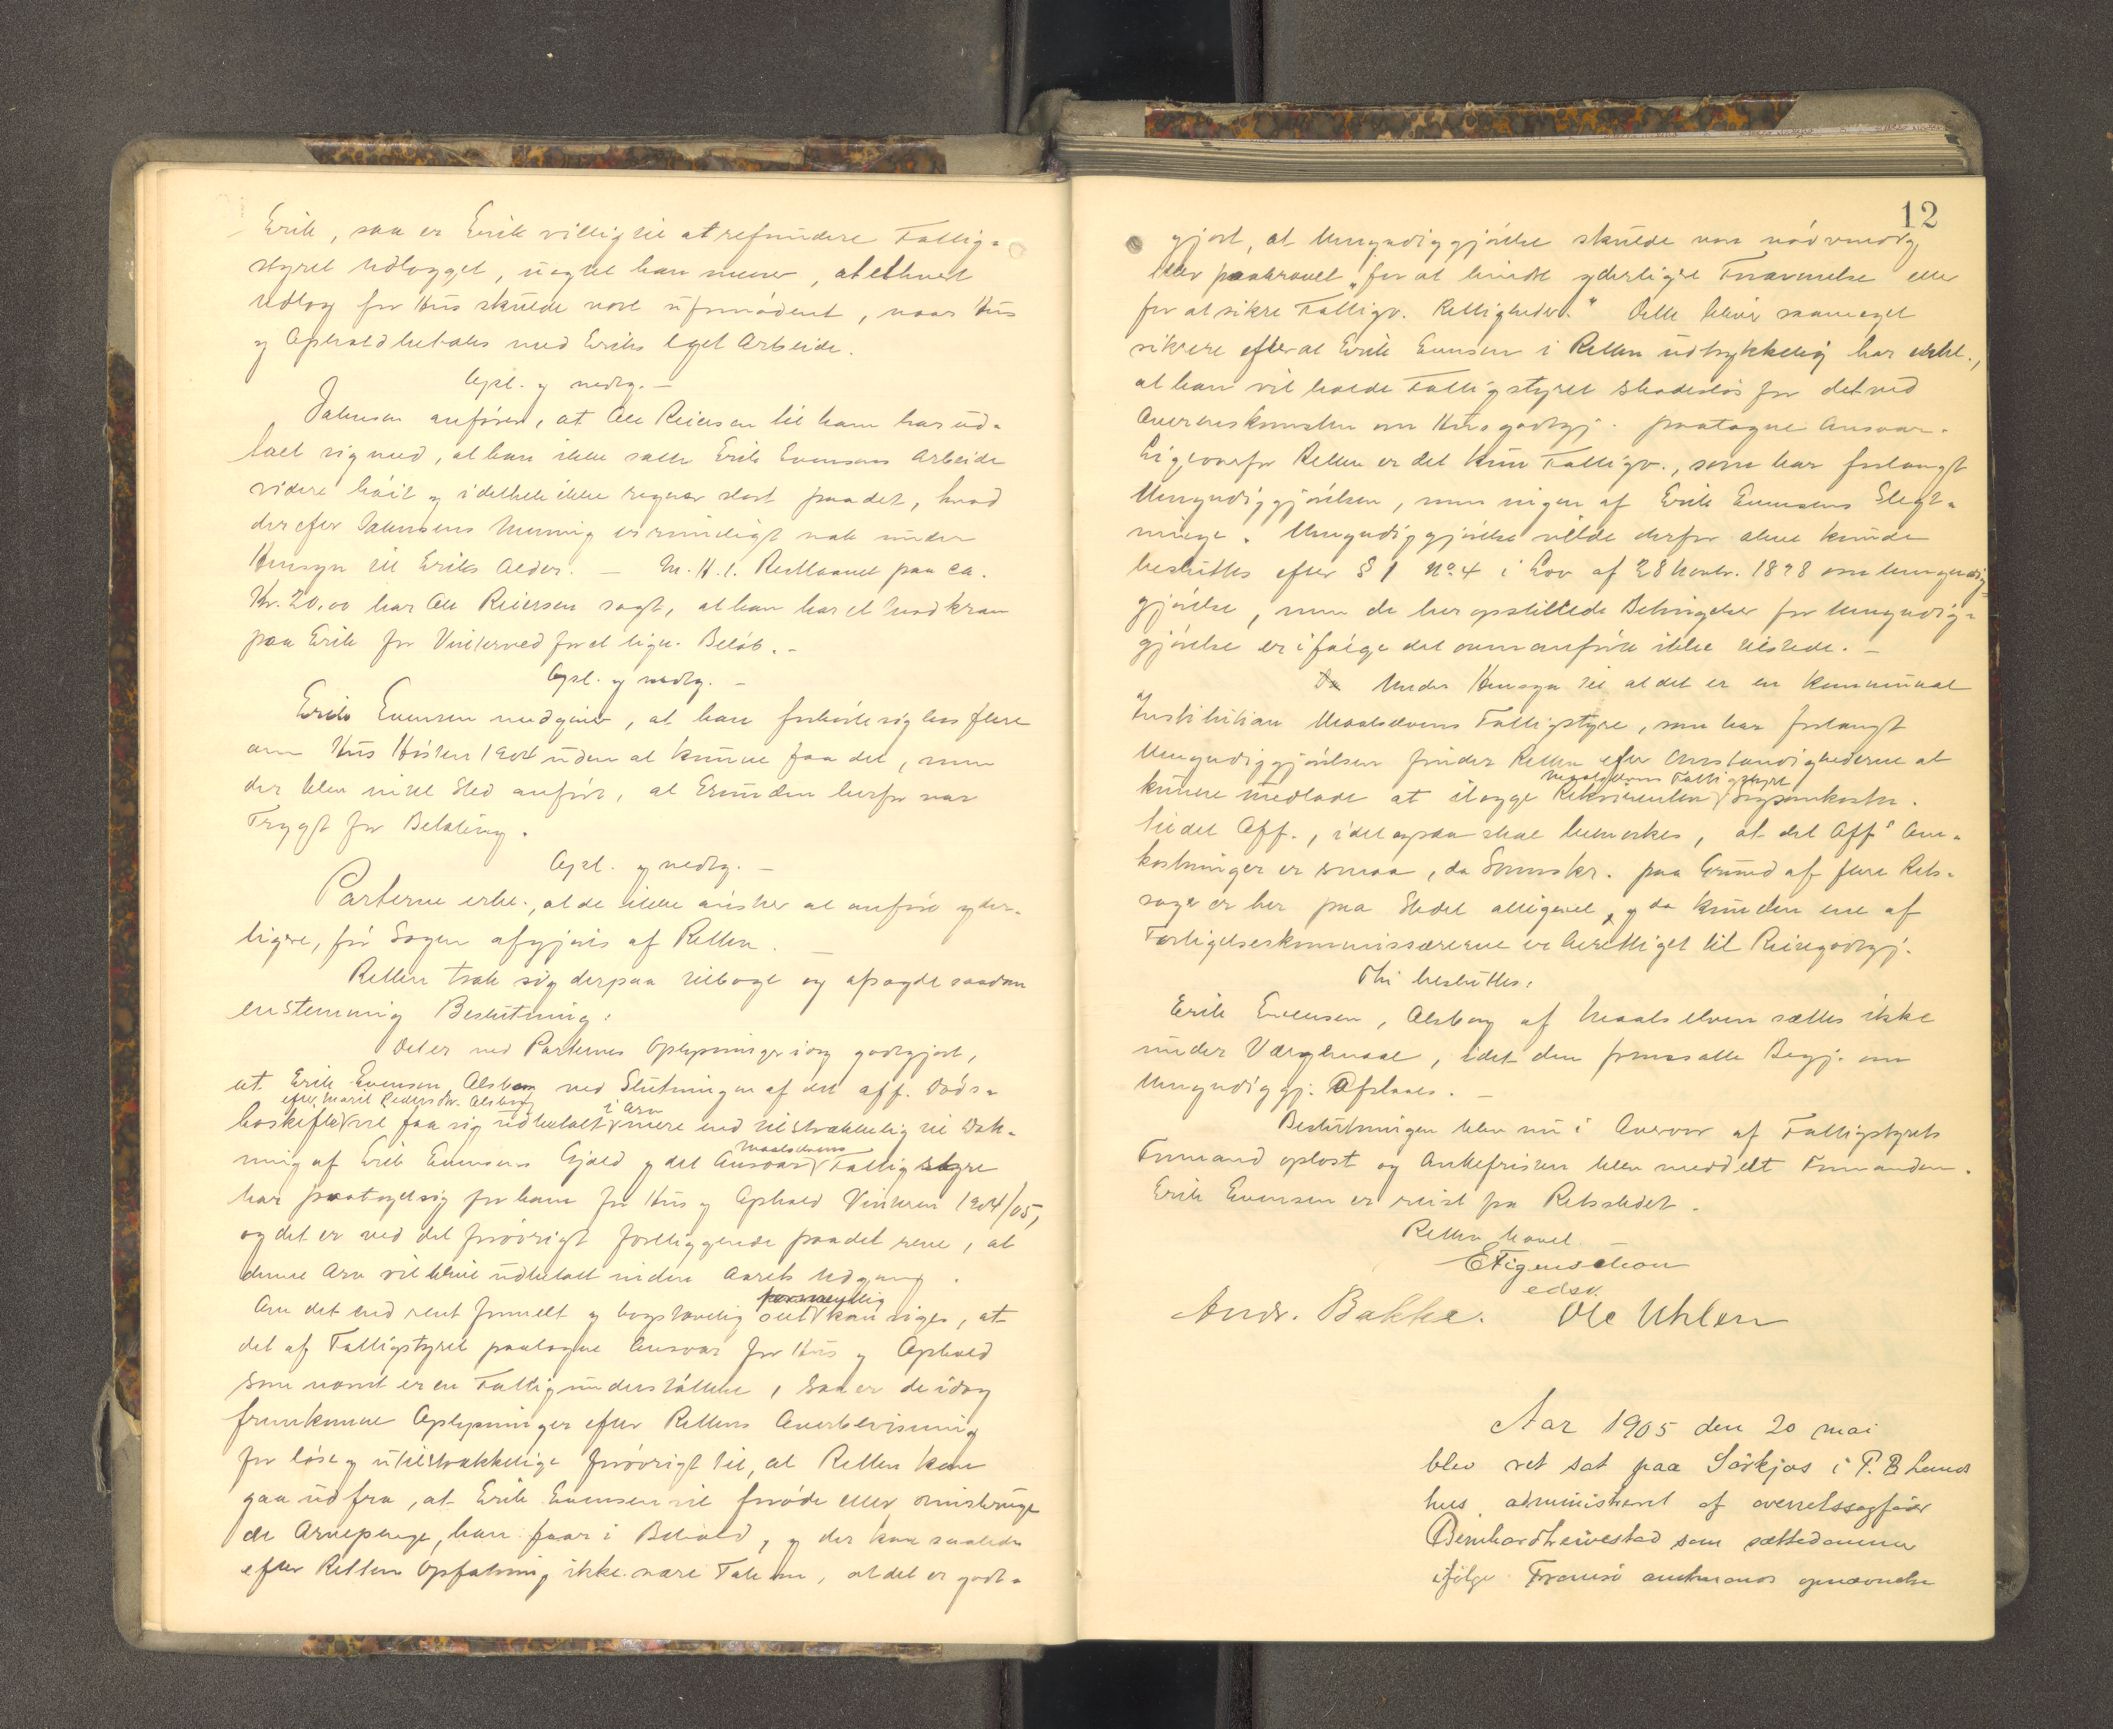 Erik, saa er Erik villig til at refundere Fattig-
styret Udlægget, uagtet han mener, at ethvert
Udlæg for Hus skulde være ufornødent, naar Hus
og Ophold betales med Eriks eget Arbeide.
Opl. og vedtg. —
Johnsen anfører, at Ole Reiersen til ham har ud-
talt sig med, at han ikke satte Erik Evensens Arbeide
videre høit og i det hele ikke regner stort paa det, hvad
der efter Johnsens Mening er rimeligt nok under
Hensyn til Eriks Alder. — M. H. t. Restlaanet paa ca.
Kr. 20,00 har Ole Reiersen sagt, at han har et Modkrav
paa Erik for Vinterved for et lign. Beløb. -
Opl. og vedtg. —
Erik Evensen medgiver, at han forhørte sig hos flere
om Hus Høsten 1904 uden at kunne faa det, men
der blev intet Sted anført, at Grunden herfor var
Frygt for Betaling.
Opl. og vedtg. —
Parterne erkl., at de ikke ønsker at anføre yder-
ligere, før Sagen afgjøres af Retten. —
Retten trak sig derpaa tilbage og afsagde saadan
enstemmig Beslutning:
Det er ved Parternes Oplysninger idag godtgjort,
at Erik Evensen Alsborg ved Slutningen af det aff. Døds-
efter Marit Pedersdtr. Alsborg i Arv
boskifte vil faa sig udbetalt mere end tilstrækkelig til Dæk-
Maalselvens
ning af Erik Evensens Gjæld og det Ansvar Fattigstyre
har paataget sig for ham for Hus og Ophold Vinteren 1904/05,
og det er ved det forøvrigt foreliggende paa det rene, at
denne Arv vil blive udbetalt inden Aarets Udgang.
Om det end rent formelt og bogstavelig seet kan siges, at
det af Fattigstyret paatagne Ansvar for Hus og Ophold
som nævnt er en Fattigunderstøttelse, saa er de idag
fremkomne Oplysninger efter Rettens Overbevisning
for løse og utilstrækkelige forøvrigt til, at Retten kan
gaa ud fra, at Erik Evensen vil forøde eller misbruge
de Arvepenge, han faar i Behold, og der kan saaledes
efter Rettens Opfatning ikke være Tale om, at det er godt-
12
gjort, at Umyndiggjørelse skulde være nødvendig
eller paakrævet "for at hindre yderligere Forarmelse eller
for at sikre Fattigv. Rettigheder." Dette bliver saameget
sikrere efterat Erik Evensen i Retten udtrykkelig har erkl.,
at han vil holde Fattigstyret skadesløs for det ved
Overenskomsten om Husgodtgj. paatagne Ansvar.
Ligeoverfor Retten er det kun Fattigv., som har forlangt
Umyndiggjørelsen, men ingen af Erik Evensens Slegt-
ninge. Umyndiggjørelse vilde derfor alene kunde
besluttes efter § 1 No. 4 i Lov af 28 Novbr. 1898 om Umyndig-
gjørelse, men de her opstillede Betingelser for Umyndig-
gjørelse er ifølge det ovenanførte ikke tilstede. —
Da Under Hensyn til at det er en kommunal
Institution Maalselvens Fattigstyre, som har forlangt
Umyndiggjørelsen finder Retten efter Omstændighederne at
Maalselvens Fattigstyre
kunne undlade at ilægge Rekvirenten Sagsomkostn.
til det Off., idet ogsaa skal bemærkes, at det Offs Om-
kostninger er smaa, da Sorenskr. paa Grund af flere Rets-
sager er her paa Stedet alligevel, og da kun den ene af
Forligelseskommissærerne er berettiget til Reisegodtgj.
Thi besluttes:
Erik Evensen, Alsborg af Maalselven sættes ikke
under Værgemaal, idet den fremsatte Begj. om
Umyndiggj. Afslaaes. —
Beslutningen blev nu i Overvær af Fattigstyrets
Formand oplæst og Ankefristen blev meddelt Formanden.
Erik Evensen er reist fra Retsstedet.
Retten hævet.
E Figenschou
edsv.
Andr. Bakke. Ole Uhlen
Aar 1905 den 20 mai
blev ret sat paa Sørkjos i P. B Lunds
hus administreret af overretssagfører
Bernhard som sættedommer
ifølge Tromsø amtmands opnævnelse